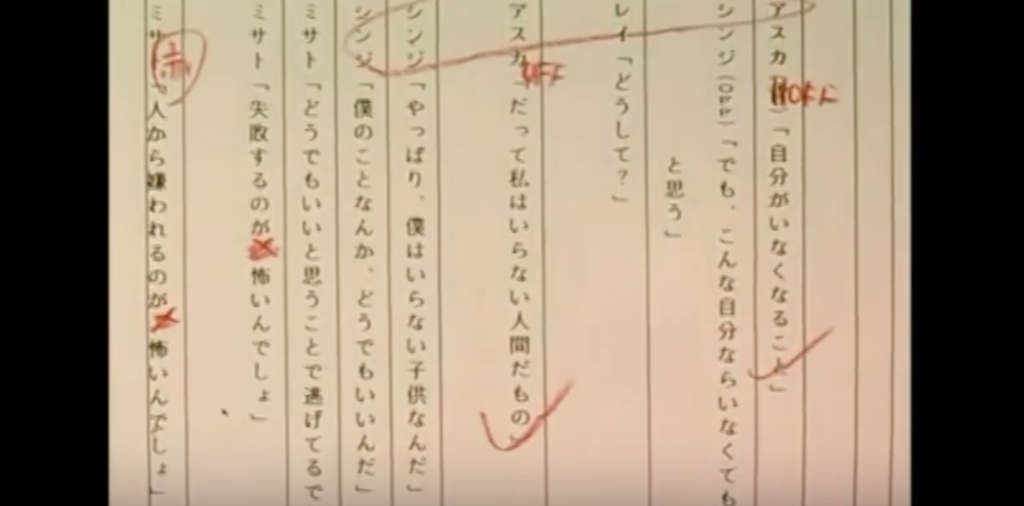 アスカ OFF「自分がいなくなること」
シンジ(OFF)「でも、こんな自分ならいなくても
と思う」
レイ「どうして?」
アスカ OFF「だって私はいらない人間だもの
シンジ「やっぱり、僕はいらない子供なんだ」
シンジ「僕のことなんか、どうでもいいんだ」
ミサト「どうでもいいと思うことで逃げてるで
ミサト「失敗するのが怖いんでしょ」
ミサト「人から嫌われるのが怖いんでしょ」